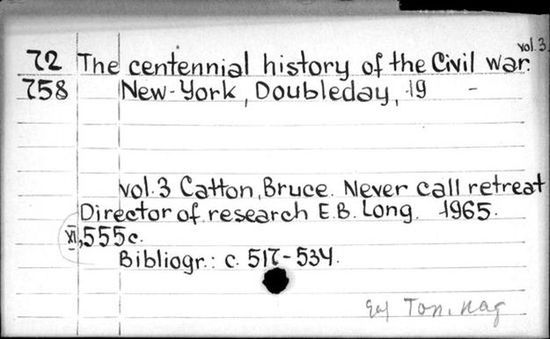 vol.3.
72 The centennial history of the Civil war.
758 New-York, Doubleday, 19 -
vol.3 Catton, Bruce. Never call retreat
Director of research E.B. Long. 1965.
XI, 555c.
Bibliogr.: c. 517-534.